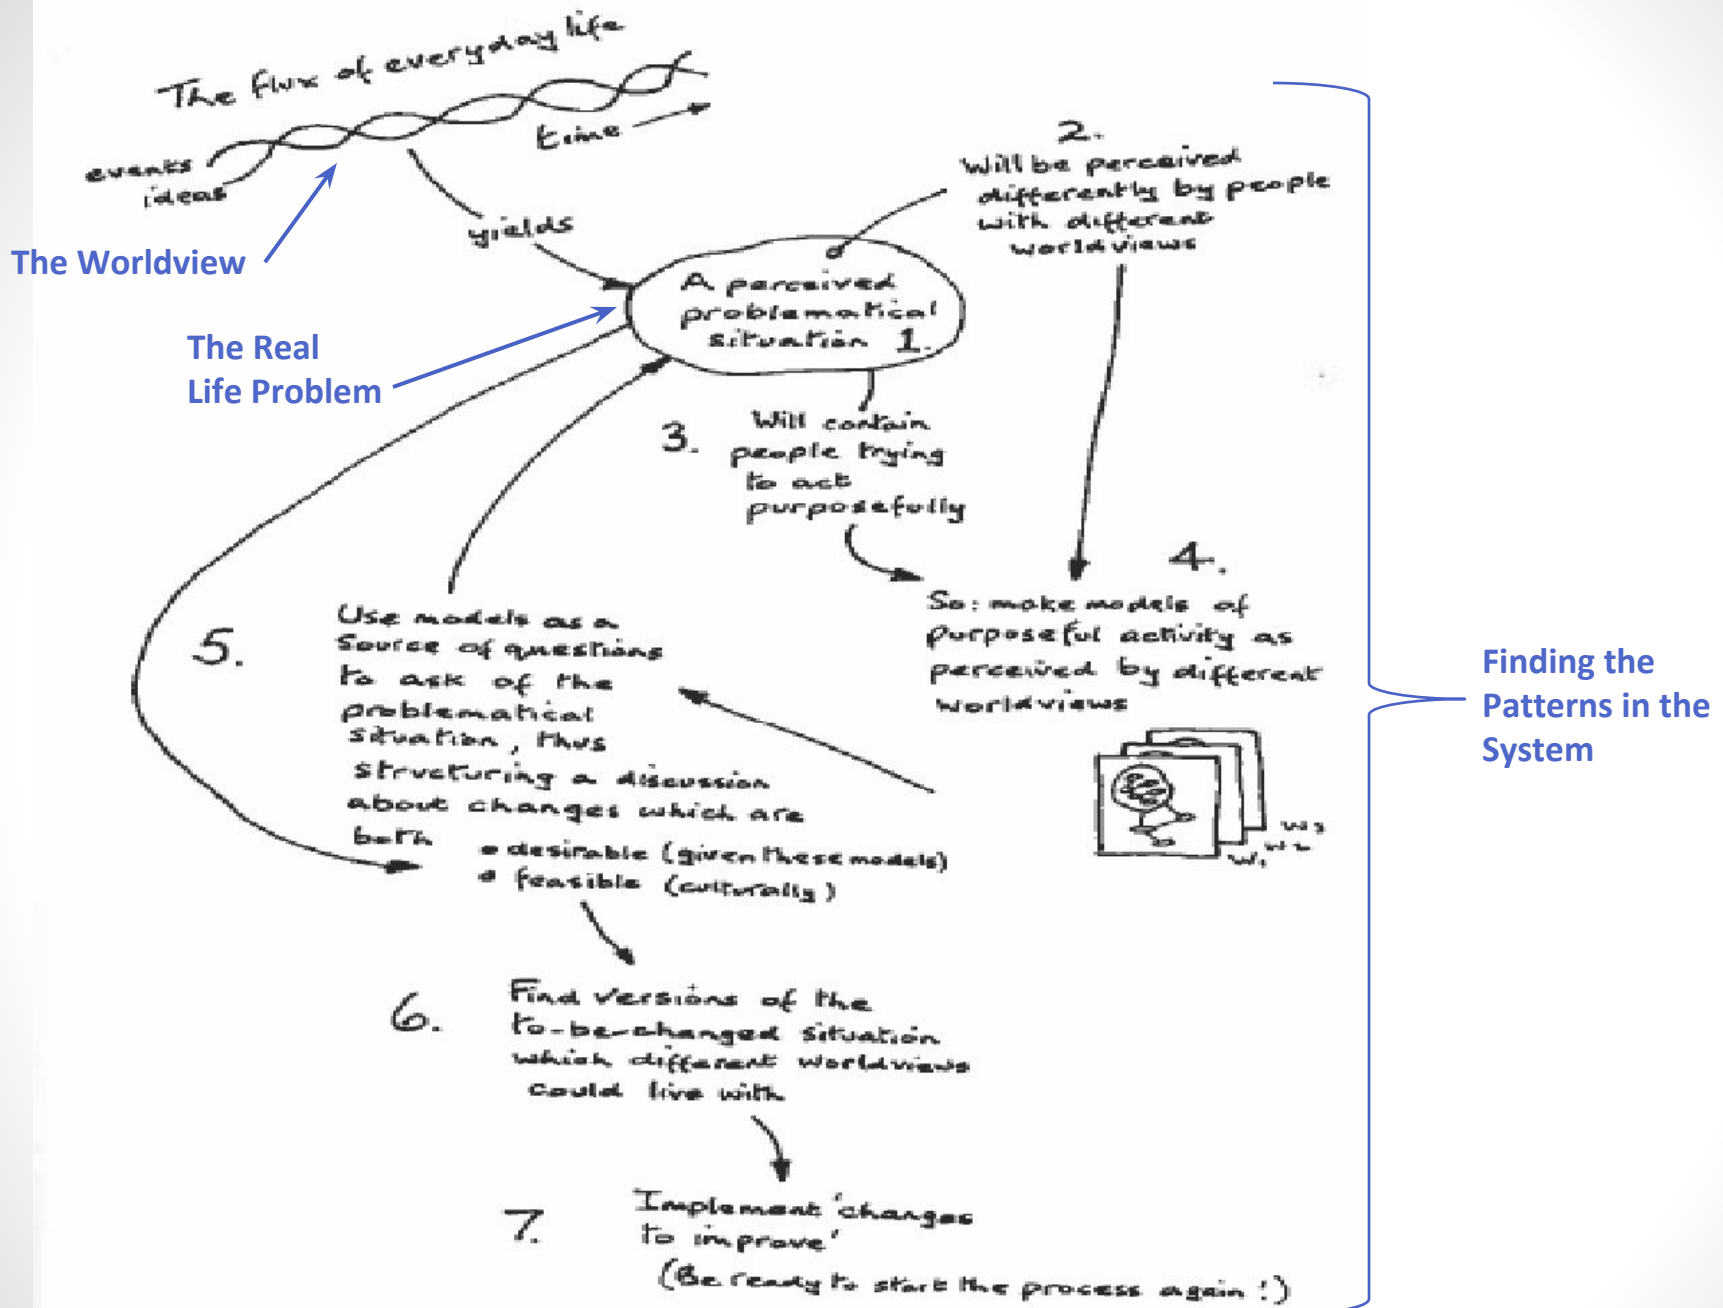 The flux of everyday life
events
ideas
time
The Worldview
yields
2.
Will be perceived
differently by people
with different
worldviews
A perceived
problematical
situation 1.
The Real
Life Problem
3.
Will contain
people trying
to act
purposefully
4.
So: make models of
purposeful activity as
perceived by different
worldviews
W1
W2
W3
5.
Use models as a
Source of questions
to ask of the
problematical
situation, thus
structuring a discussion
about changes which are
both
• desirable (given these models)
• feasible (culturally)
Finding the
Patterns in the
System
6.
Find versions of the
to-be-changed situation
which different worldviews
could live with
7.
Implement 'changes
to improve'
(Be ready to start the process again!)